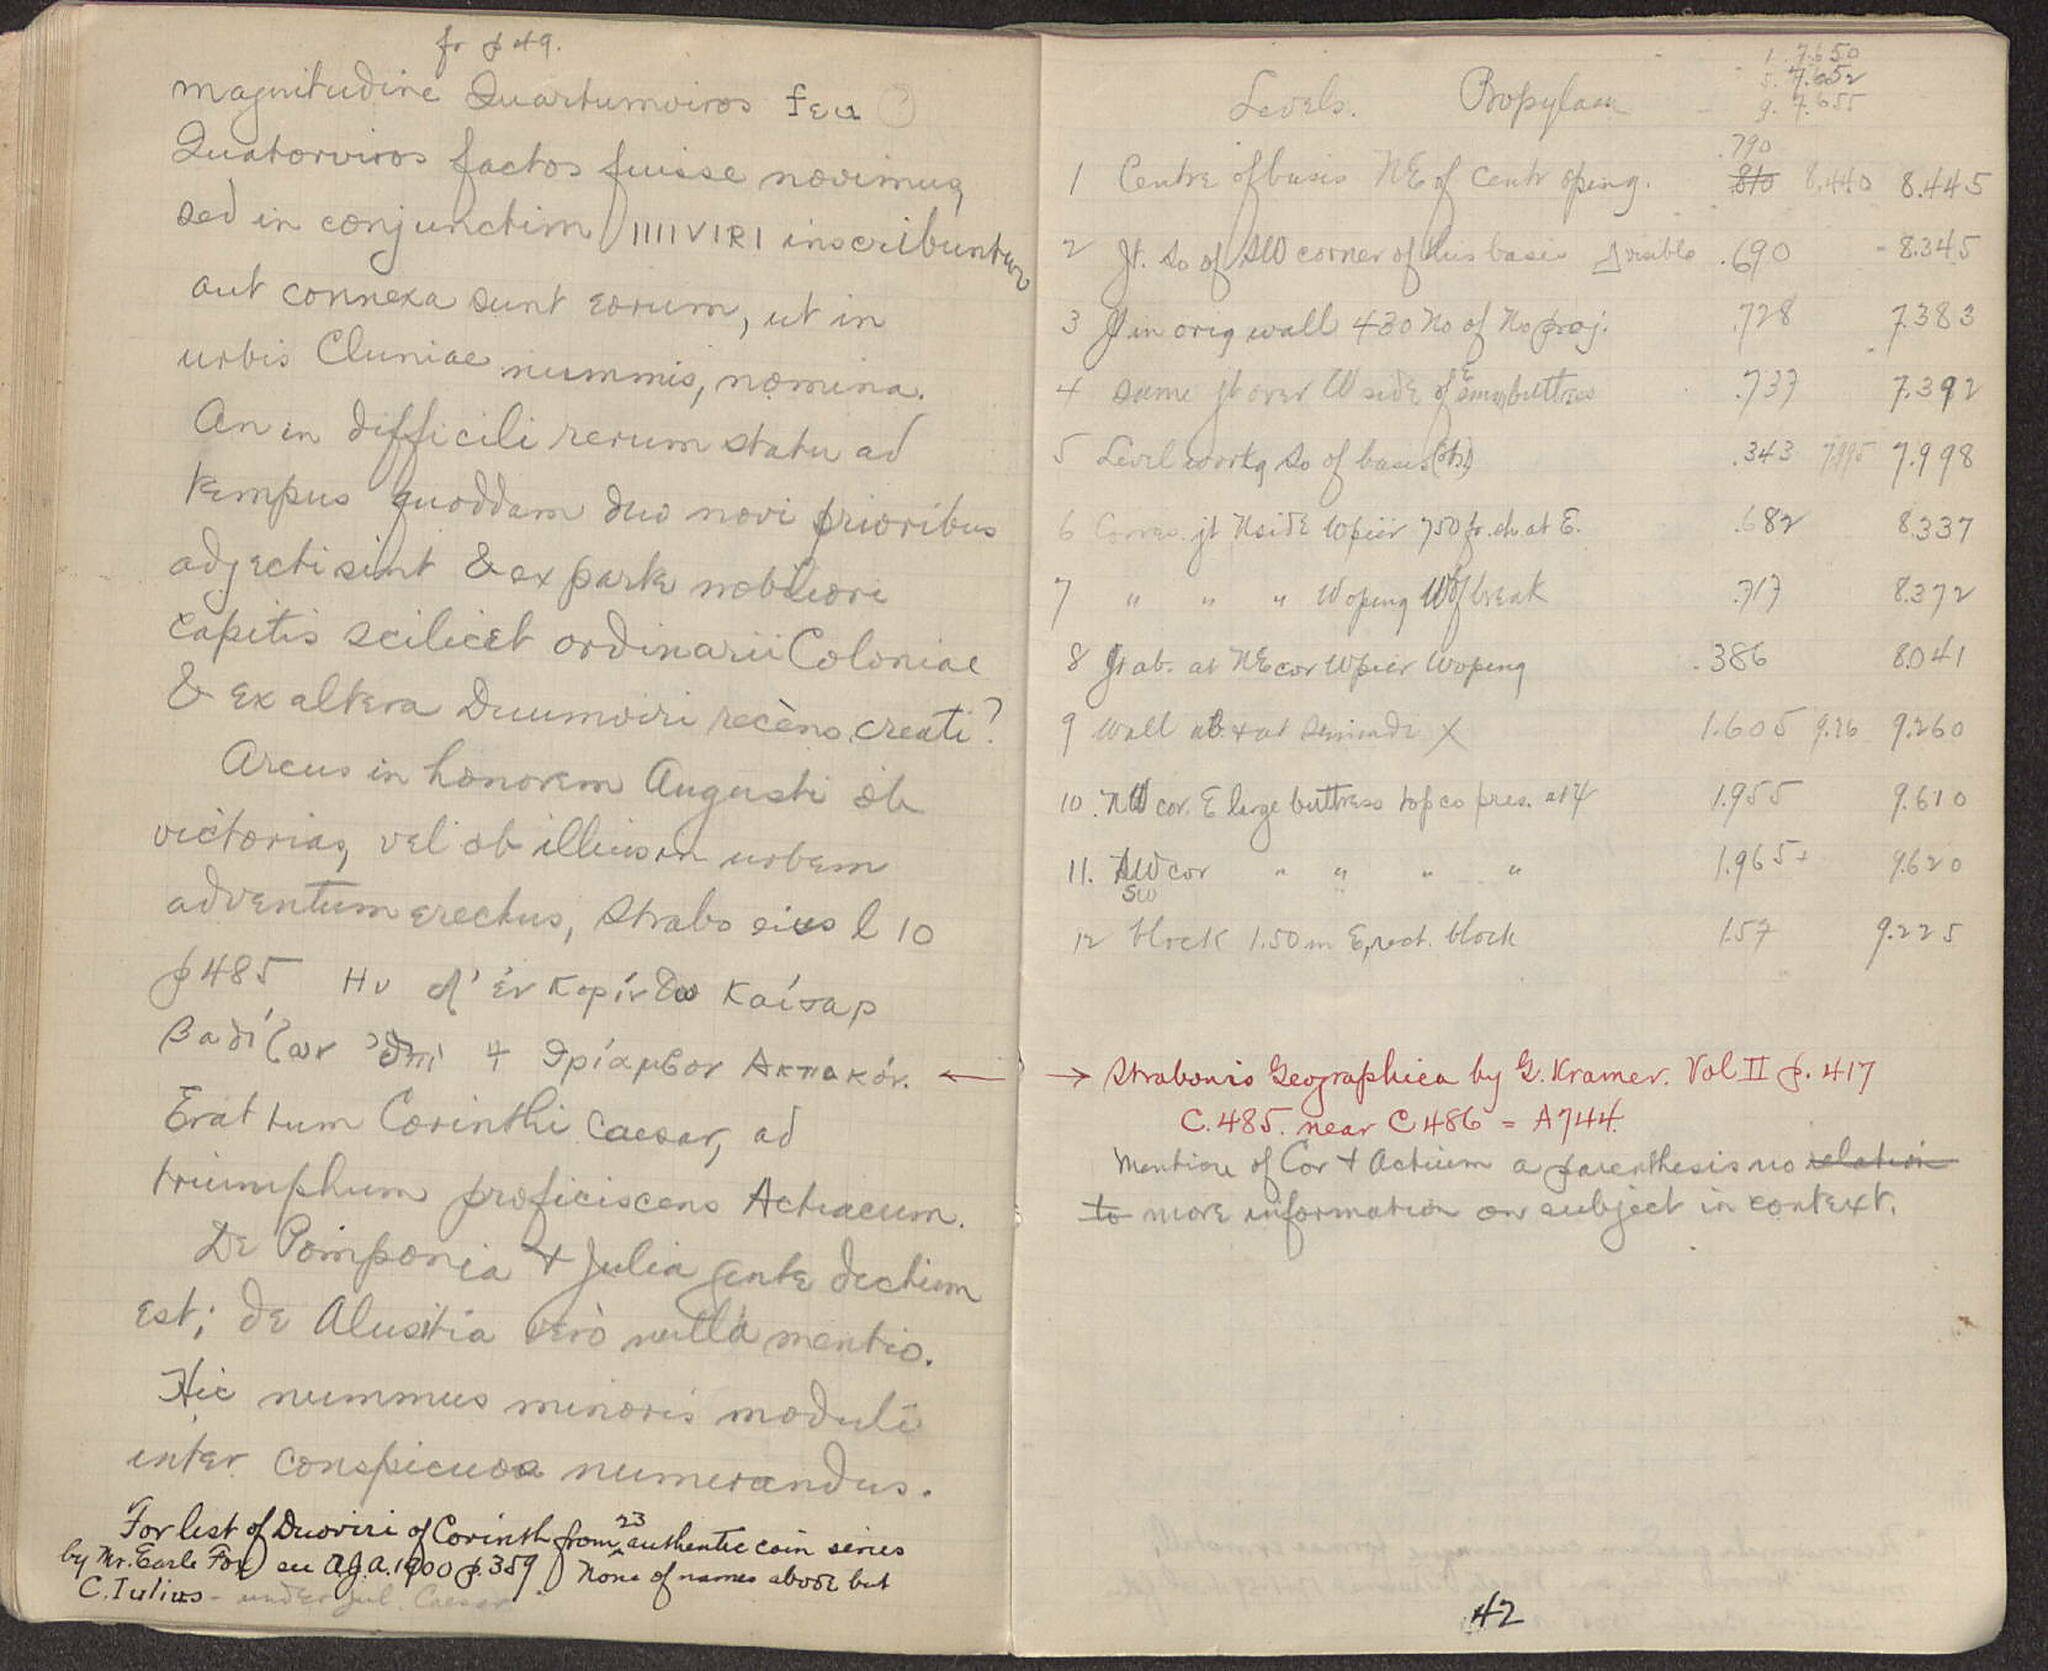 fr p 49.
magnitudine Quartumviros feu ?
Quatorviros factos fuisse novimus,
sed in conjunctim IIIIVIRI inscribuntur
aut connexa sunt eorum, ut in
urbis Cluniae nummis, nomina.
An in difficili rerum statu ad
tempus quoddam duo novi prioribus
adjecti sint & ex parte nobiliori
capitis scilicet ordinarii Coloniae
& ex altera Duumviri recèns creati?
Arcus in honorem Augusti ob
victorias, vel ob illius in urbem
adventum erectus, Strabo eius l 10
p 485 Ην δ' ἐν Κορίνθω Καίσαρ
Βαδίζων ἐπὶ τ θρίαμβον Ακτιακόν. ←
Erat tum Corinthi Caesar, ad
triumphum proficiscens Actiacum.
De Pomponia + Julia gente dictum
est; de Alusitia verò nulla mentio.
Hic nummus minoris moduli
inter conspicuos numerandus.
For list of Duoviri of Corinth from 23 authentic coin series
by Mr. Earle Fox see A.J.A. 1900 p. 359) None of names above but
C. Iulius - under Jul. Caesar
1. 7.650
5. 7.652
9. 7.655
Levels. Propylaea
.790
1 Centre of basis NE of centr oping. 810 8.440 8.445
2 Jt. So of SW corner of this basis visible .690 - 8.345
3 Jt in orig wall 430 No of No proj. .728 7.383
4 same jt over W side of E small buttress .737 7.392
5 Level workg So of basis (st) .343 7.995 7.998
6 Corres. jt N side W pier 750 fr. ch at E. .682 8.337
7 " " " W oping W of break .717 8.372
8 Jt ab. at NE cor W pier W oping .386 8.041
9 Wall ab + at X 1.605 9.26 9.260
10. NW cor. E large buttress top co pres. at 4 1.955 9.610
11. SW cor " " " " 1.965+ 9.620
SW
12 block 1.50 m E, rect. block 1.57 9.225
→ Strabonis Geographica by G. Kramer. Vol II p. 417
C. 485. near C 486 = A 744.
Mention of Cor + Actium a parenthesis no relation
to more information on subject in context.
42